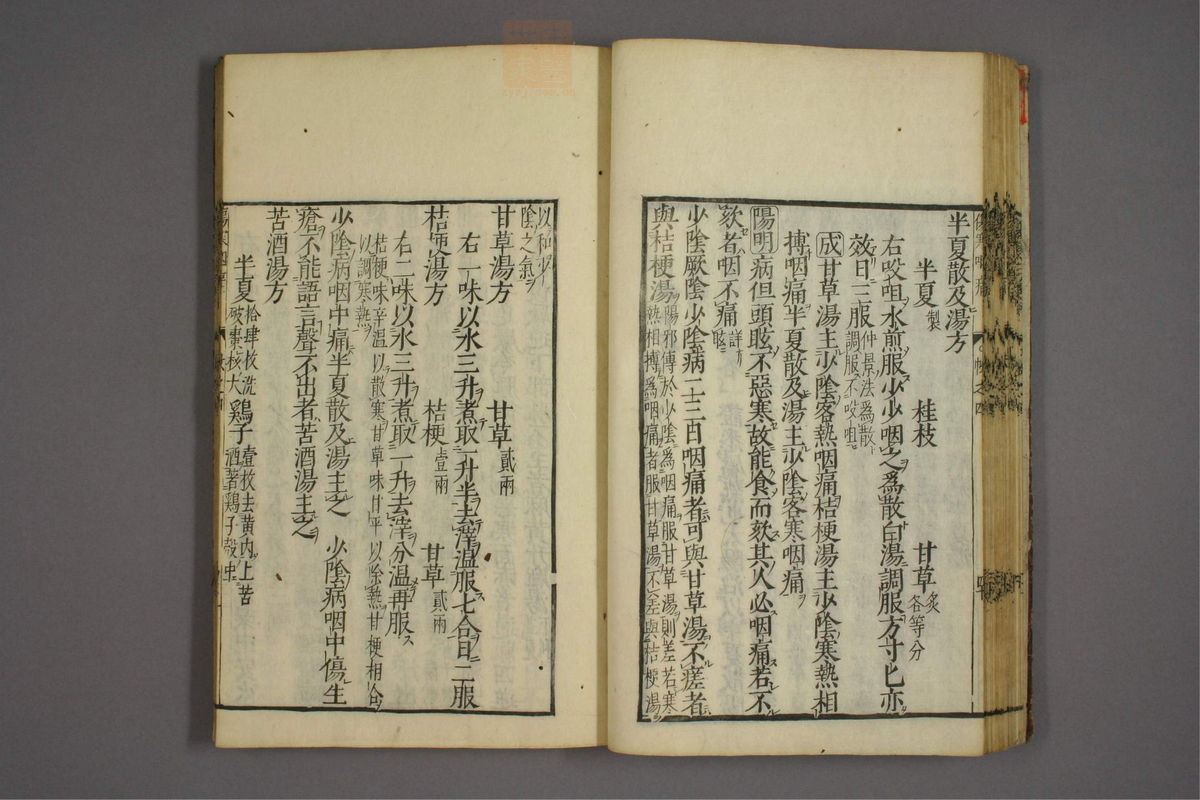 半夏散及湯方
半夏製 桂枝 甘草炙各等分
右㕮咀水煎服少少咽之爲散白湯調服方寸匕亦
效日三服仲景法爲散調服不㕮咀
成甘草湯主少陰客熱咽痛桔梗湯主少陰寒熱相
摶咽痛半夏散及湯主少陰客寒咽痛
陽明病但頭眩不惡寒故能食而欬其人必咽痛若不
欬者咽不痛詳前眩
少陰厥陰少陰病二三日咽痛者可與甘草湯不瘥者
與桔梗湯陽邪傳於少陰爲咽痛服甘草湯則差若寒熱相摶爲咽痛者服甘草湯不差與桔梗湯
以和少陰之氣
甘草湯方 甘草貳兩
右一味以水三升煮取一升半去滓溫服七合日二服
桔梗湯方 桔梗壹兩 甘草貳兩
右二味以水三升煮取一升去滓分溫再服
桔梗味辛溫以散寒甘草味甘平以除熱甘梗相合以調寒熱
少陰病咽中痛半夏散及湯主之 少陰病咽中傷生
瘡不能語言聲不出者苦酒湯主之
苦酒湯方
半夏拾肆枚洗破棗核大 鷄子壹枚去黃內上苦酒著鷄子殼中